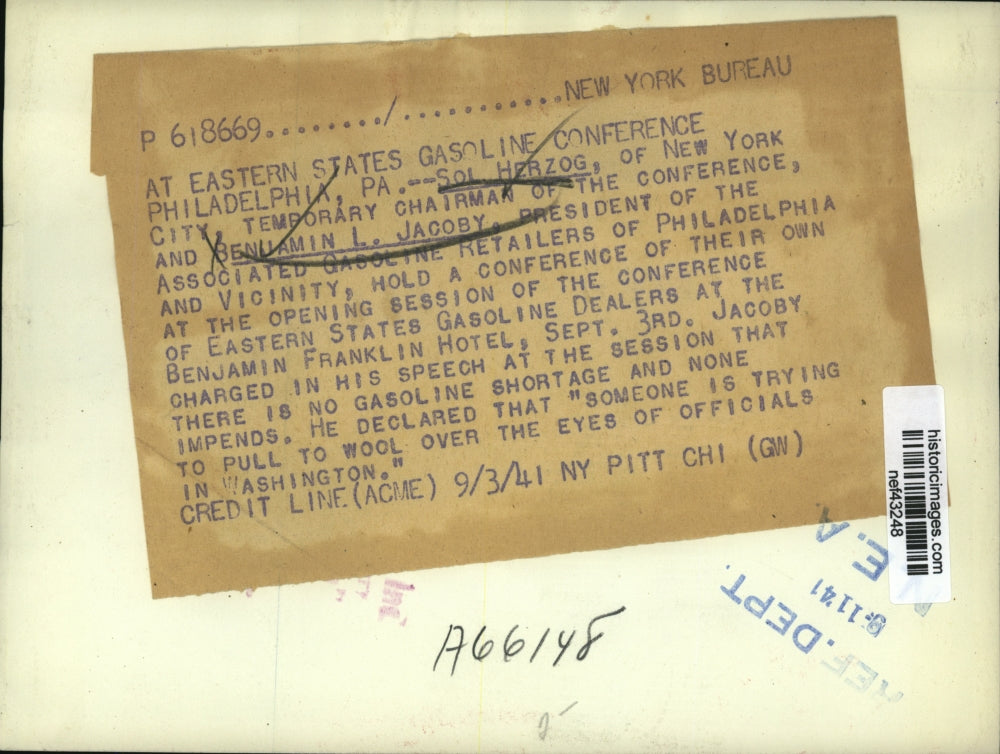 P 618669......../............NEW YORK BUREAU
AT EASTERN STATES GASOLINE CONFERENCE
PHILADELPHIA, PA.--SOL HERZOG, OF NEW YORK
CITY, TEMPORARY CHAIRMAN OF THE CONFERENCE,
AND BENJAMIN L. JACOBY, PRESIDENT OF THE
ASSOCIATED GASOLINE RETAILERS OF PHILADELPHIA
AND VICINITY, HOLD A CONFERENCE OF THEIR OWN
AT THE OPENING SESSION OF THE CONFERENCE
OF EASTERN STATES GASOLINE DEALERS AT THE
BENJAMIN FRANKLIN HOTEL, SEPT. 3RD. JACOBY
CHARGED IN HIS SPEECH AT THE SESSION THAT
THERE IS NO GASOLINE SHORTAGE AND NONE
IMPENDS. HE DECLARED THAT "SOMEONE IS TRYING
TO PULL TO WOOL OVER THE EYES OF OFFICIALS
IN WASHINGTON."
CREDIT LINE (ACME) 9/3/41 NY PITT CHI (GW)
historicimages.com
nef43248
E. A
9-11'41
REF. DEPT.
A66148